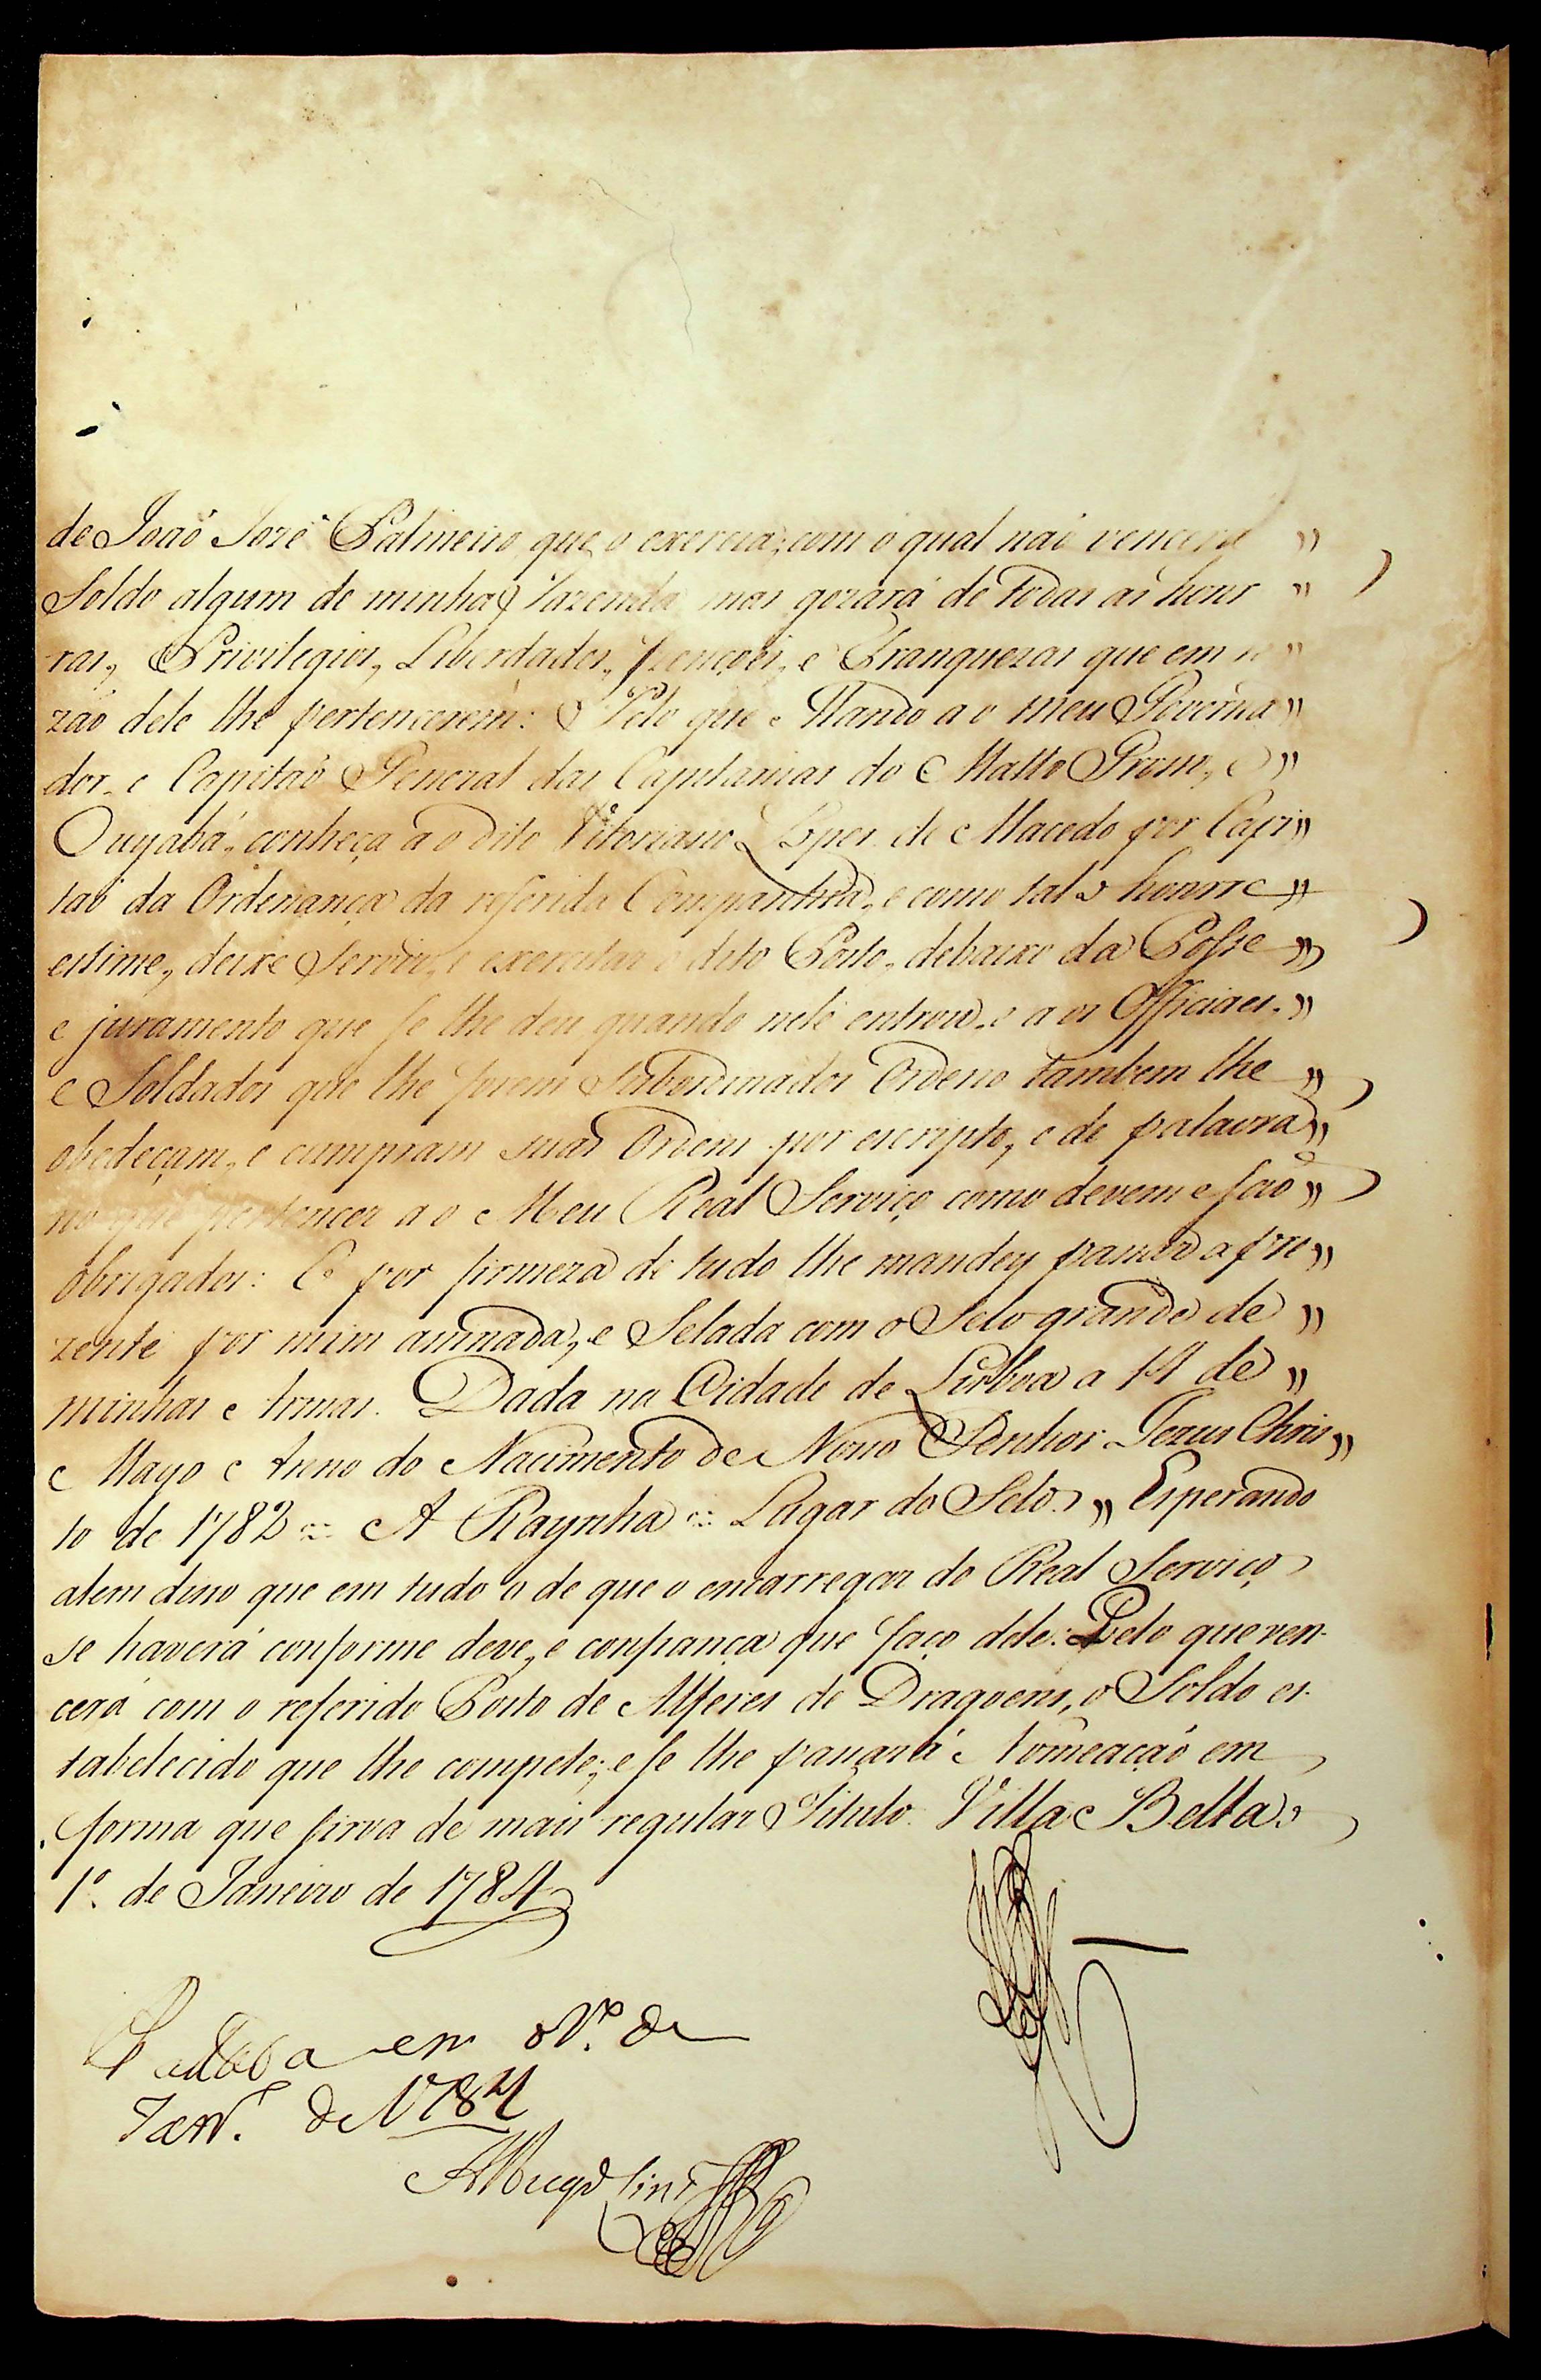 de João Jozé Palmeiro que o exercia; com o qual não vencerá "
Soldo algum de minha Fazenda mas gozará de todas as hon "
ras, Privilegios, Liberdades, Izençoẽs, e Franquezas que em ra "
zão dele lhe pertencerem: Pelo que Mando ao meu Governa "
dor, e Capitaõ General das Capitanias do Matto Grosso, e "
Cuyabá, conheça ao dito Vitoriano Lopes de Macedo por Capi "
taõ da Ordenança da referida Companhia, e como tal o honrre "
estime, deixe Servir, e exercitar o dito Posto, debaixo da Posse "
e juramento que se lhe deu quando nele entrou, e aos Officiaes "
e Soldados que lhe forem Subordinados Ordeno tambem lhe "
obedeçam, e cumpram suas Ordens por escripto, e de palavra "
no que pertencer ao Meu Real Serviço como devem e saõ "
obrigados: E por firmeza de tudo lhe mandey passar a pre "
zente por mim assinada, e Selada com o Selo grande de "
minhas Armas. Dada na Cidade de Lisboa a 14 de "
Mayo Anno do Nacimento de Nosso Senhor Jezus Chris "
to de 1782 = A Raynha = Lugar do Selo. " Esperando
alem disso que em tudo o de que o encarregar do Real Serviço
se haverá conforme deve, e confiança que faço dele: Pelo que ven-
cerá com o referido Posto de Alferes de Dragoens, o Soldo es-
tabelecido que lhe compete; e se lhe passará Nomeaçaõ em
forma que sirva de mais regular Titulo. Villa Bella
1º. de Janeiro de 1784
em de
Janrº. de 1784